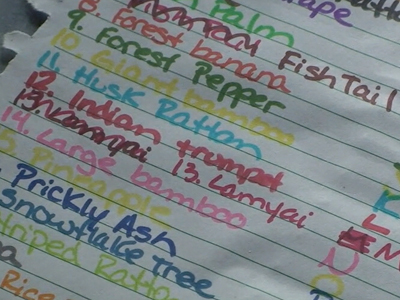 Palm
FishTail
8. Forest banana
9. Forest Pepper
10. Giant bamboo
11. Husk Rattan
12. Indian trumpet
13. Lamyai
14. Large bamboo
Pineapple
Prickly Ash
Snowflake Tree
Striped Rattan
Rice